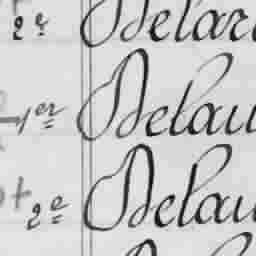 2e Delar
1er Delau
2e Delau